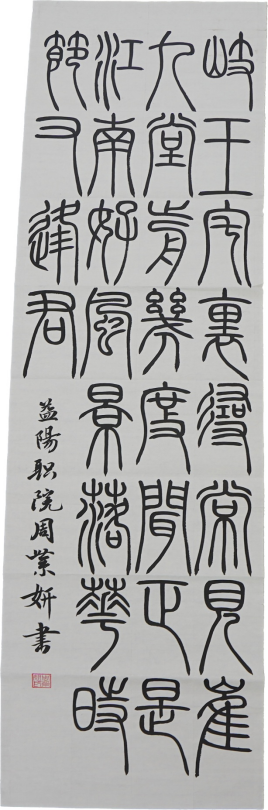 岐王宅裏尋常見崔
九堂前幾度聞正是
江南好風景落華時
節又逢君
益陽职院周業妍書